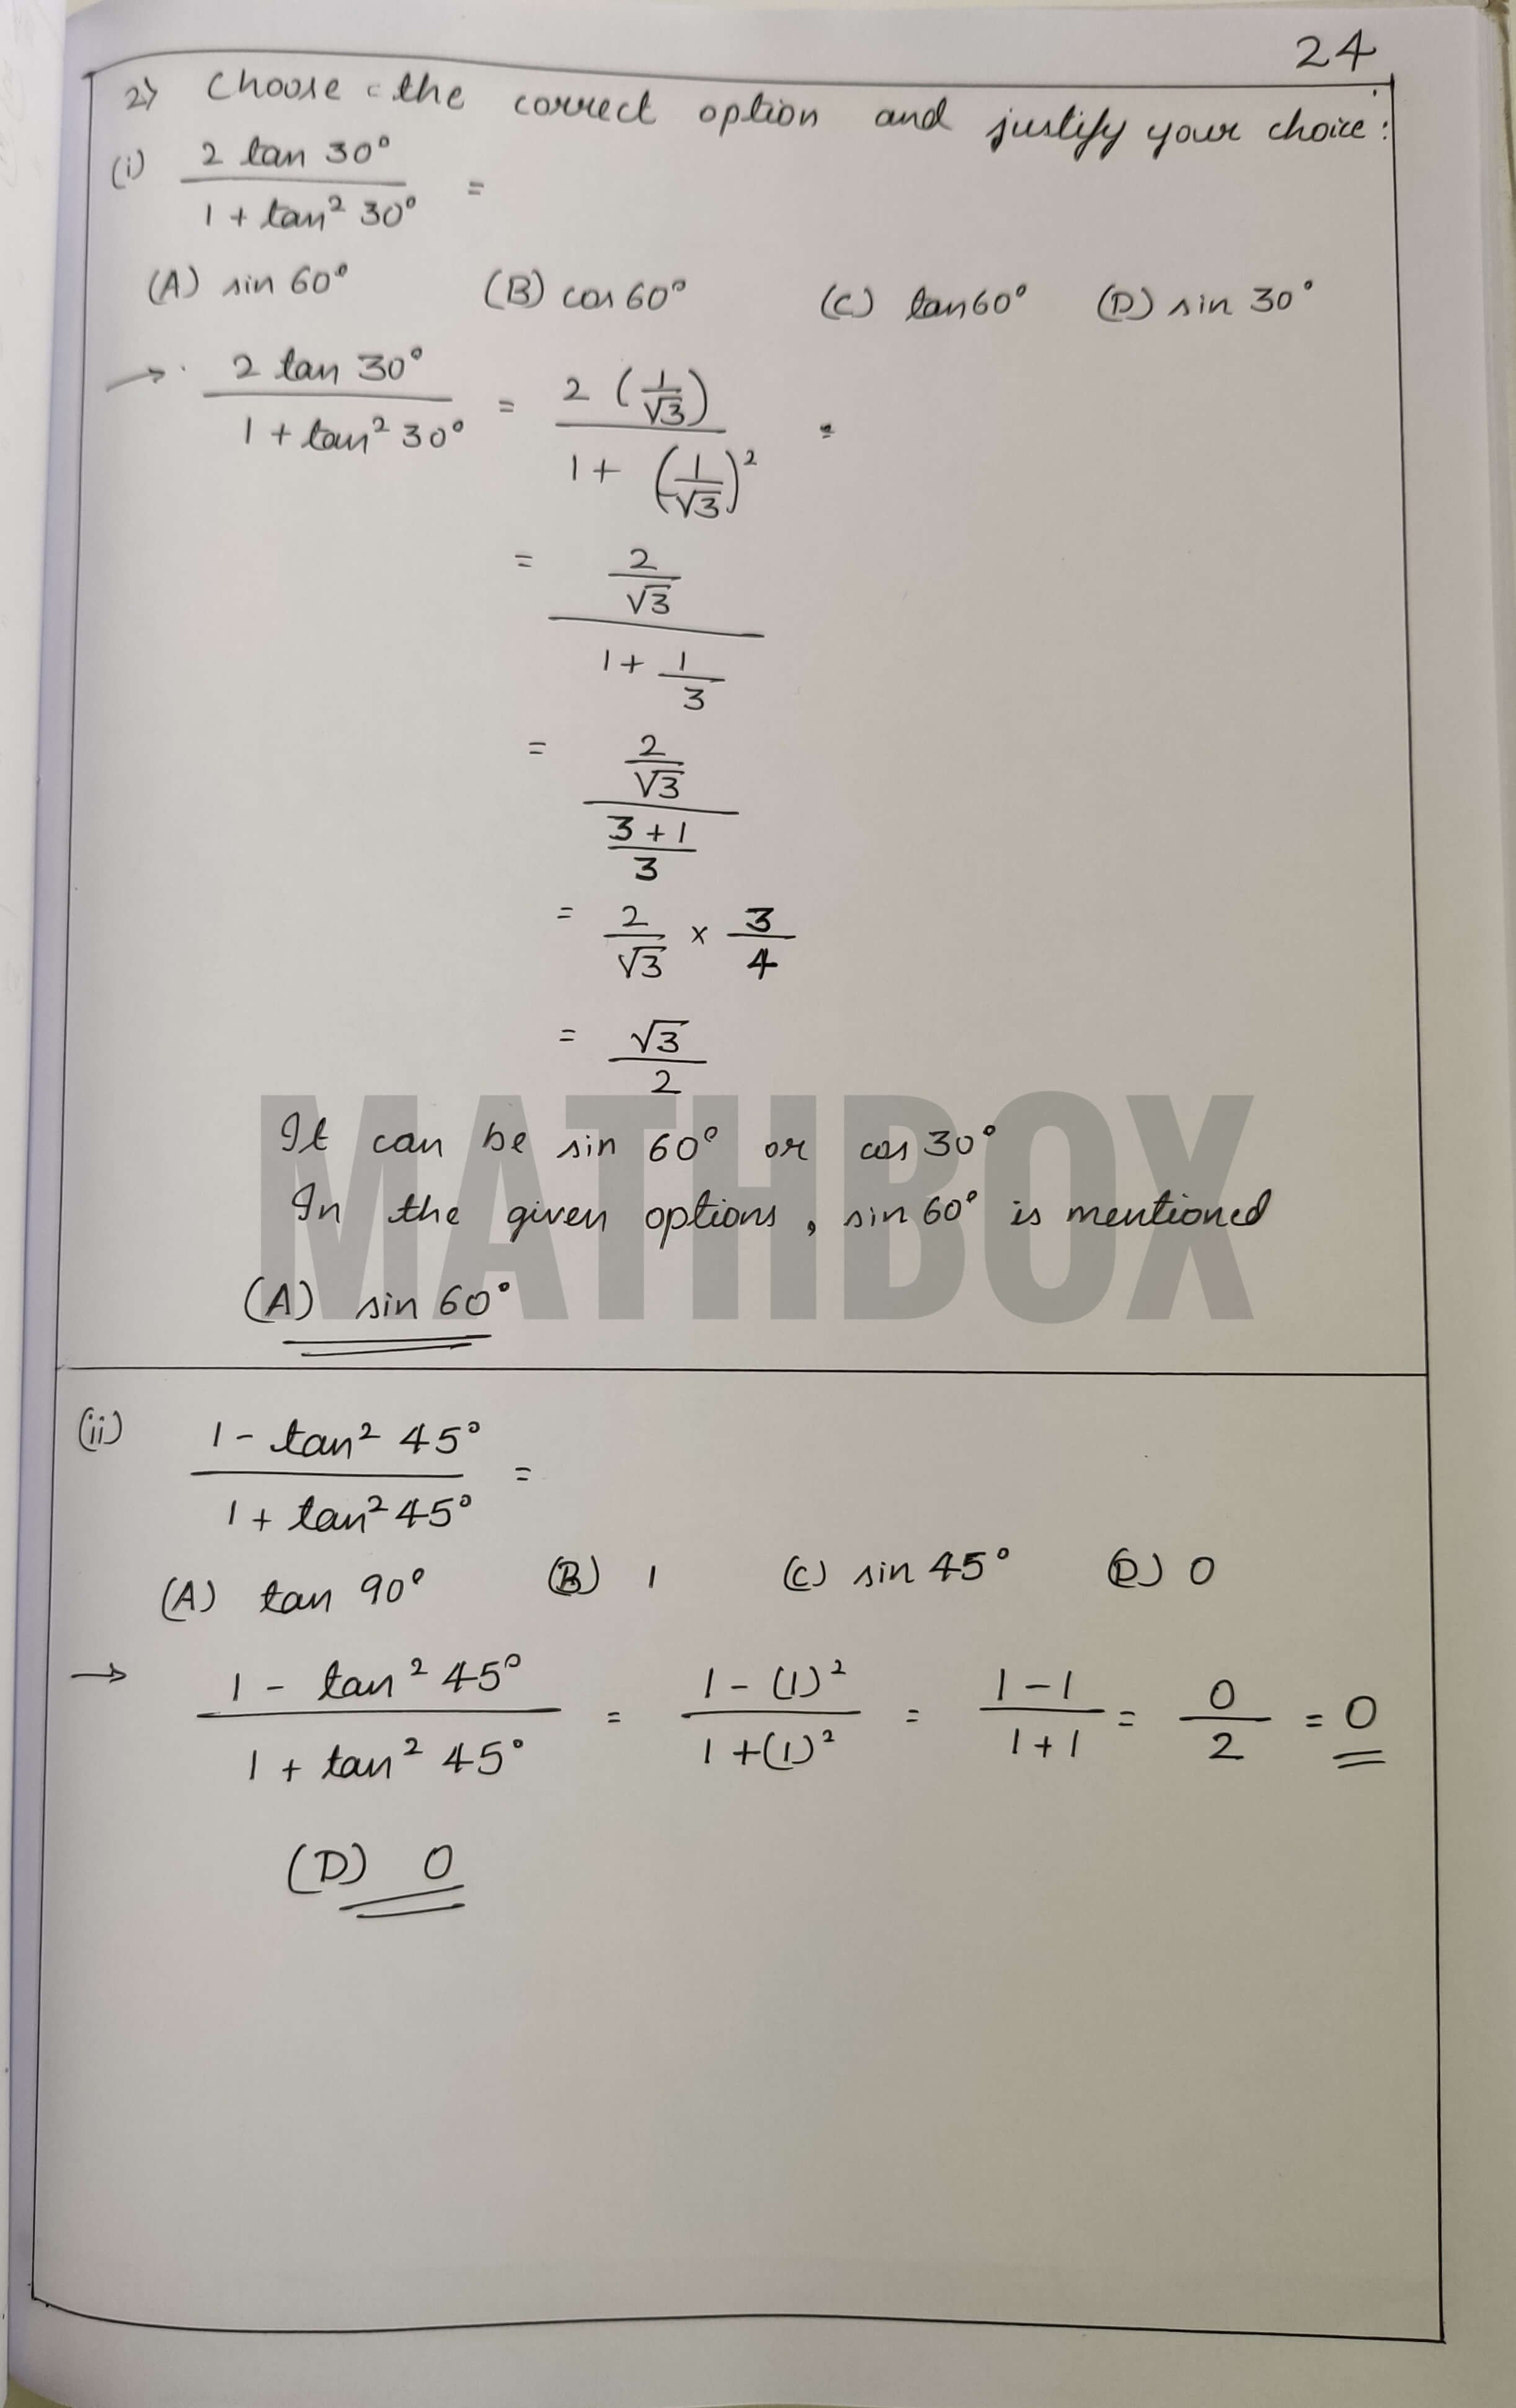 24
2) Choose the correct option and justify your choice:
(i) 2 tan 30° / 1 + tan² 30° =
(A) sin 60° (B) cos 60° (C) tan 60° (D) sin 30°
→ 2 tan 30° / 1 + tan² 30° = 2 (1/√3) / 1 + (1/√3)² =
= 2/√3 / 1 + 1/3
= 2/√3 / 3+1/3
= 2/√3 × 3/4
= √3/2
It can be sin 60° or cos 30°
In the given options, sin 60° is mentioned
(A) sin 60°
MATHBOX
(ii) 1 - tan² 45° / 1 + tan² 45° =
(A) tan 90° (B) 1 (C) sin 45° (D) 0
→ 1 - tan² 45° / 1 + tan² 45° = 1 - (1)² / 1 + (1)² = 1 - 1 / 1 + 1 = 0/2 = 0
(D) 0